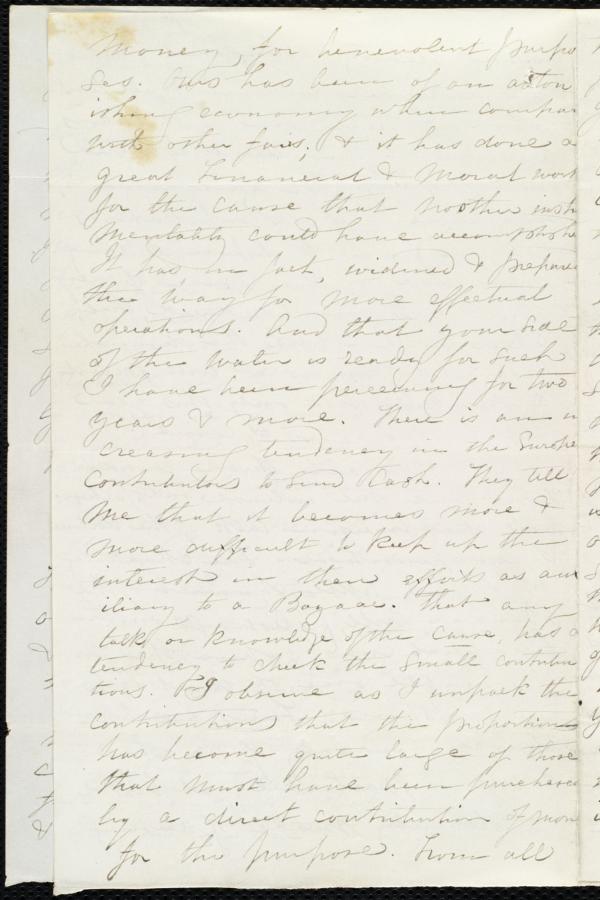 Money, for benevolent purpo
ses. This has been of an aston
ishing economy when compar
with other fairs; & it has done a
great Financial & Moral work
for the cause that no other inst
mentality could have accomplishe
It has, in fact, widened & prepared
the way for more effectual
operations. And that your side
of the water is ready for such
I have been perceiving for two
years & more. There is an in
creasing tendency in the Europe
contributors to send Cash. They tell
me that it becomes more &
more difficult to keep up the
interest in their efforts as aux
iliary to a Bazaar. That any
talk or knowledge of the cause, has a
tendency to check the small contribu
tions. I observe as I unpack the
contributions that the proportion
has become quite large of those
that must have been purchased
by a direct contribution of mon
for the purpose. From all